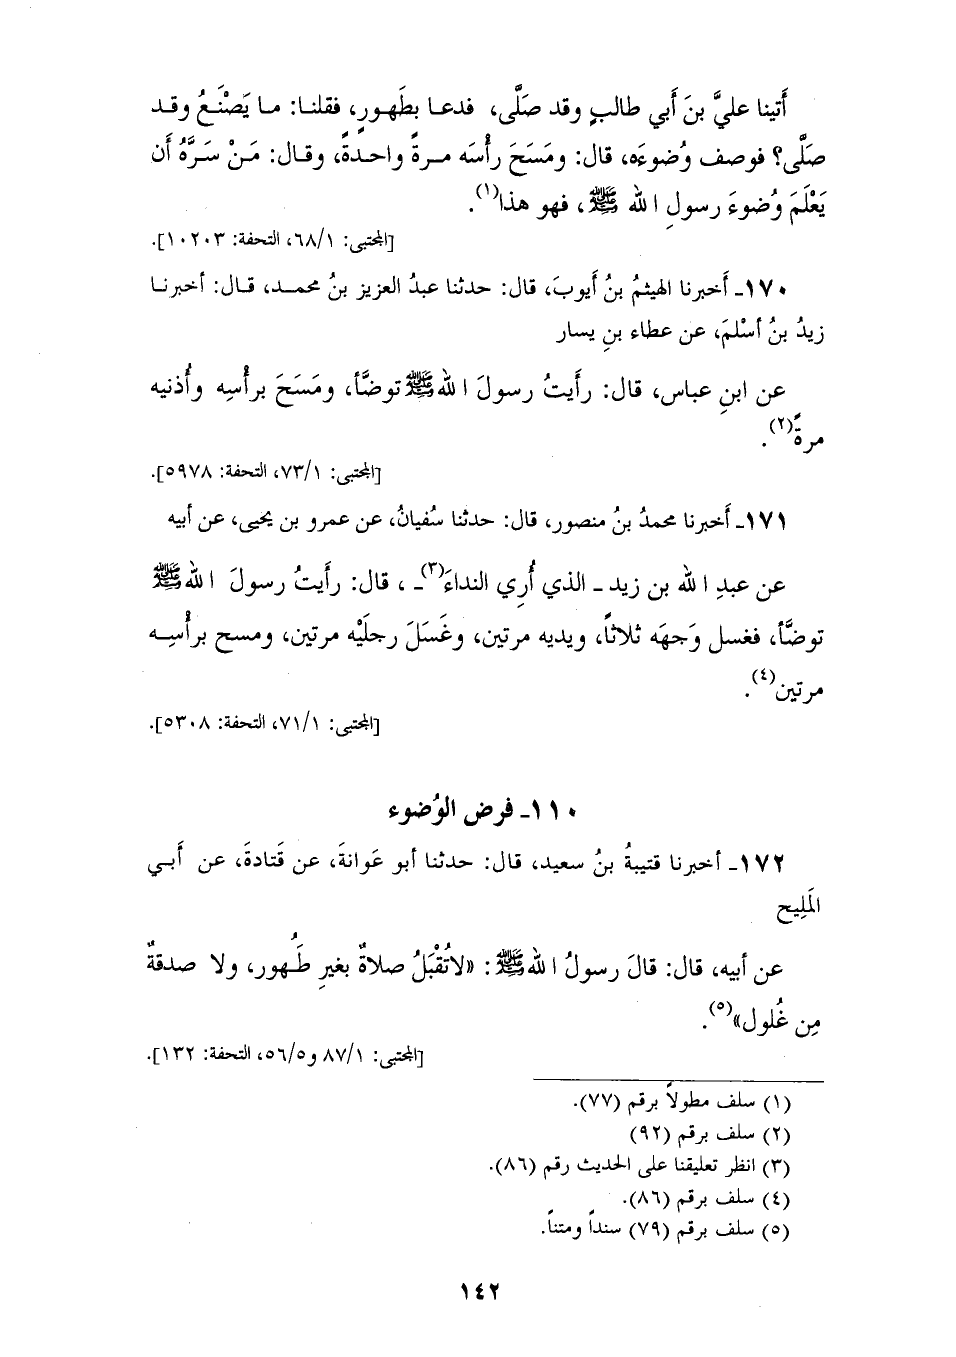 أَتينا عليَّ بنَ أَبي طالبٍ وقد صَلَّى، فدعا بطَهورٍ، فقلنا: ما يَصْنَعُ وقد
صَلَّى؟ فوصف وُضوءَه، قال: ومَسَحَ رأْسَه مرةً واحدةً، وقال: مَنْ سَرَّهُ أَن
يَعْلَمَ وُضوءَ رسولِ الله ﷺ، فهو هذا(١).
[المجتبى: ٦٨/١، التحفة: ١٠٢٠٣].
١٧٠ـ أَخبرنا الهيثمُ بنُ أَيوبَ، قال: حدثنا عبدُ العزيز بنُ محمد، قال: أخبرنا
زيدُ بنُ أسْلمَ، عن عطاء بنِ يسار
عن ابنِ عباس، قال: رأَيتُ رسولَ الله ﷺ توضَّأ، ومَسَحَ برأْسِه وأُذنيه
مرةً(٢).
[المجتبى: ٧٣/١، التحفة: ٥٩٧٨].
١٧١ـ أَخبرنا محمدُ بنُ منصور، قال: حدثنا سُفيانُ، عن عمرو بن يحيى، عن أبيه
عن عبدِ الله بن زيد ـ الذي أُرِي النداءَ(٣)ـ ، قال: رأَيتُ رسولَ الله ﷺ
توضَّأ، فغسل وَجهَه ثلاثاً، ويديه مرتين، وغَسَلَ رجلَيْه مرتين، ومسح برأْسِه
مرتين(٤).
[المجتبى: ٧١/١، التحفة: ٥٣٠٨].
١١٠ـ فرض الوُضوء
١٧٢ـ أخبرنا قتيبةُ بنُ سعيد، قال: حدثنا أبو عَوانةَ، عن قَتادةَ، عن أَبي
المَلِيح
عن أبيه، قال: قالَ رسولُ الله ﷺ: «لاتُقْبَلُ صلاةٌ بغيرِ طُهور، ولا صدقةٌ
مِن غُلول»(٥).
[المجتبى: ٨٧/١ و٥٦/٥، التحفة: ١٣٢].
(١) سلف مطولاً برقم (٧٧).
(٢) سلف برقم (٩٢)
(٣) انظر تعليقنا على الحديث رقم (٨٦).
(٤) سلف برقم (٨٦).
(٥) سلف برقم (٧٩) سنداً ومتناً.
١٤٢